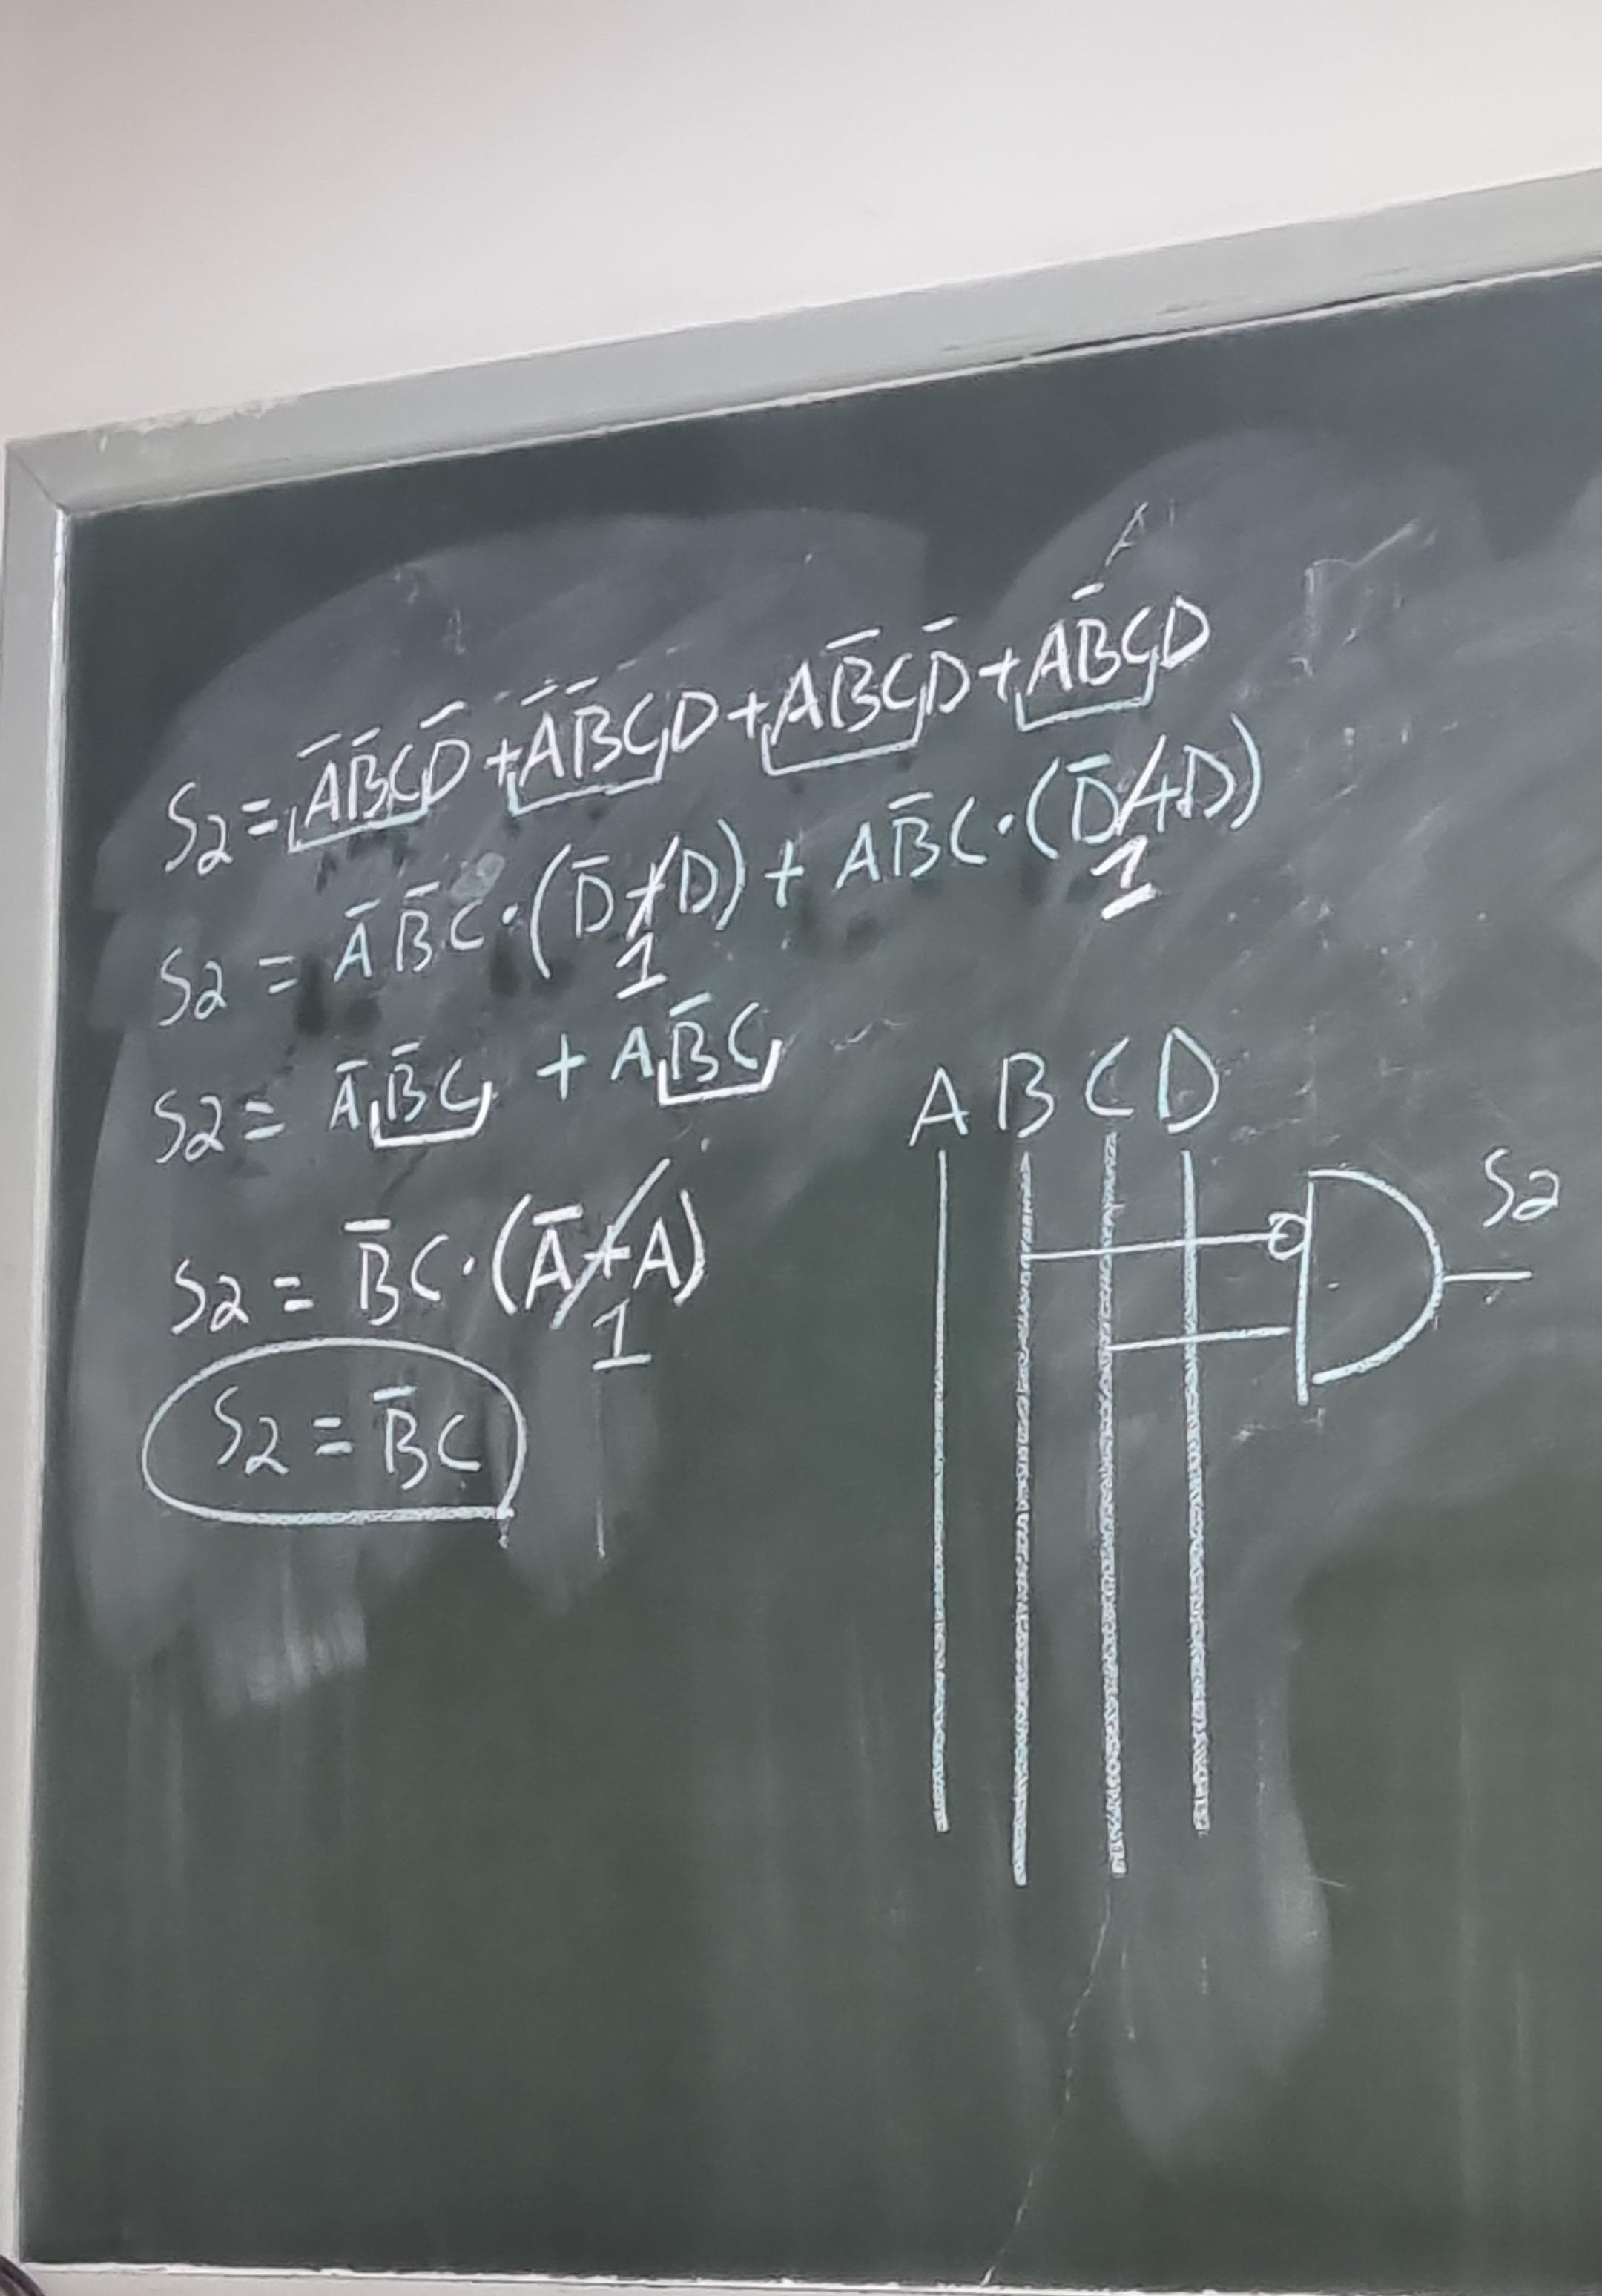 S2 = A̅B̅CD̅ + A̅B̅CD + AB̅CD̅ + AB̅CD
S2 = A̅B̅C·(D̅+D) + AB̅C·(D̅+D)
1 1
S2 = A̅B̅C + AB̅C
S2 = B̅C·(A̅+A)
1
S2 = B̅C
A B C D
S2